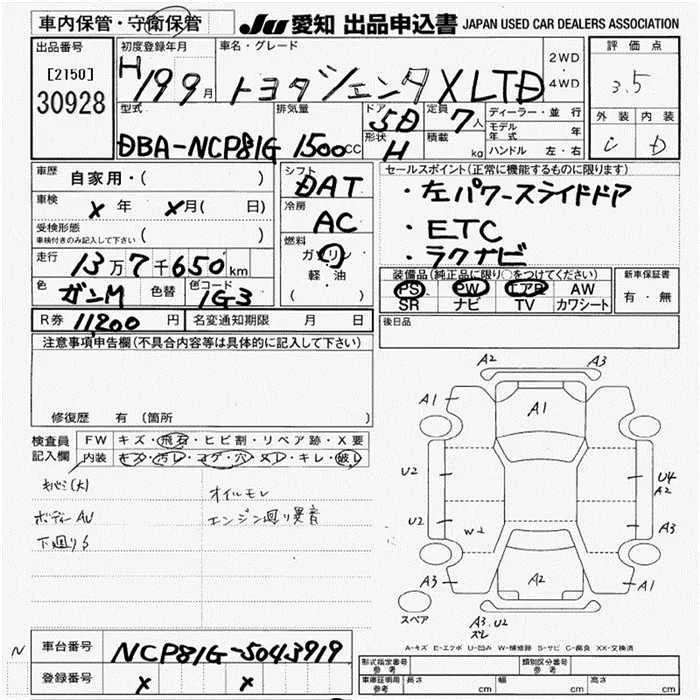 車内保管・守衛保管
JU 愛知 出品申込書 JAPAN USED CAR DEALERS ASSOCIATION
出品番号
[2150]
30928
初度登録年月
H19 9月
車名・グレード
トヨタ シエンタ X LTD
2WD
・
4WD
評価点
3.5
外装 内装
C D
型式
DBA-NCP81G
排気量
1500cc
ドア
5D
形状
H
定員
7人
積載
kg
ディーラー・並行
モデル年式 年
ハンドル 左・右
車歴
自家用・( )
車検
X年 X月( 日)
受検形態
車検付きのみ記入して下さい ( )
走行
13万7千650km
色
ガンM
色替
色コード
1G3
シフト
DAT
冷房
AC
燃料
ガソリン
軽油
( )
セールスポイント(正常に機能するものに限ります)
・左パワースライドドア
・ETC
・ラクナビ
装備品(純正品に限り○をつけてください)
PS PW エアB AW
SR ナビ TV カワシート
新車保証書
有・無
R券 11200円
名変通知期限 月 日
後日品
注意事項申告欄(不具合内容等は具体的に記入して下さい)
修復歴 有(箇所 )
検査員記入欄
FW キズ・飛石・ヒビ割・リペア跡・X要
内装 キズ・汚レ・コゲ・穴・スレ・キレ・破レ
キハミ(大)
ボディーAU
オイルモレ
エンジン廻り異音
A2
A3
A1
A1
U2
U4
A2
U2
W2
A3
A3
A2
A1
スペア
A3.U2
ズレ
A-キズ E-エクボ U-凹み W-補修跡 S-サビ C-腐食 XX-交換済
N
車台番号
NCP81G-5043919
登録番号
X X
形式指定番号 参考
類別区分番号 参考
車庫証明用 参考
長さ cm
幅 cm
高さ cm